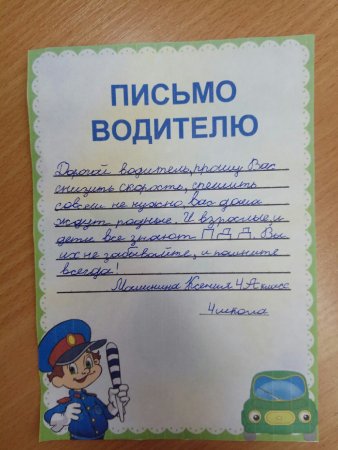 ПИСЬМО
ВОДИТЕЛЮ
Дорогой водитель, прошу Вас
снизить скорость, спешить
совсем не нужно, вас дома
ждут родные. И взрослые, и
дети все знают П Д Д. Вы
их не забывайте, и помните
всегда!
Малинина Ксения 4 А класс
4 школа